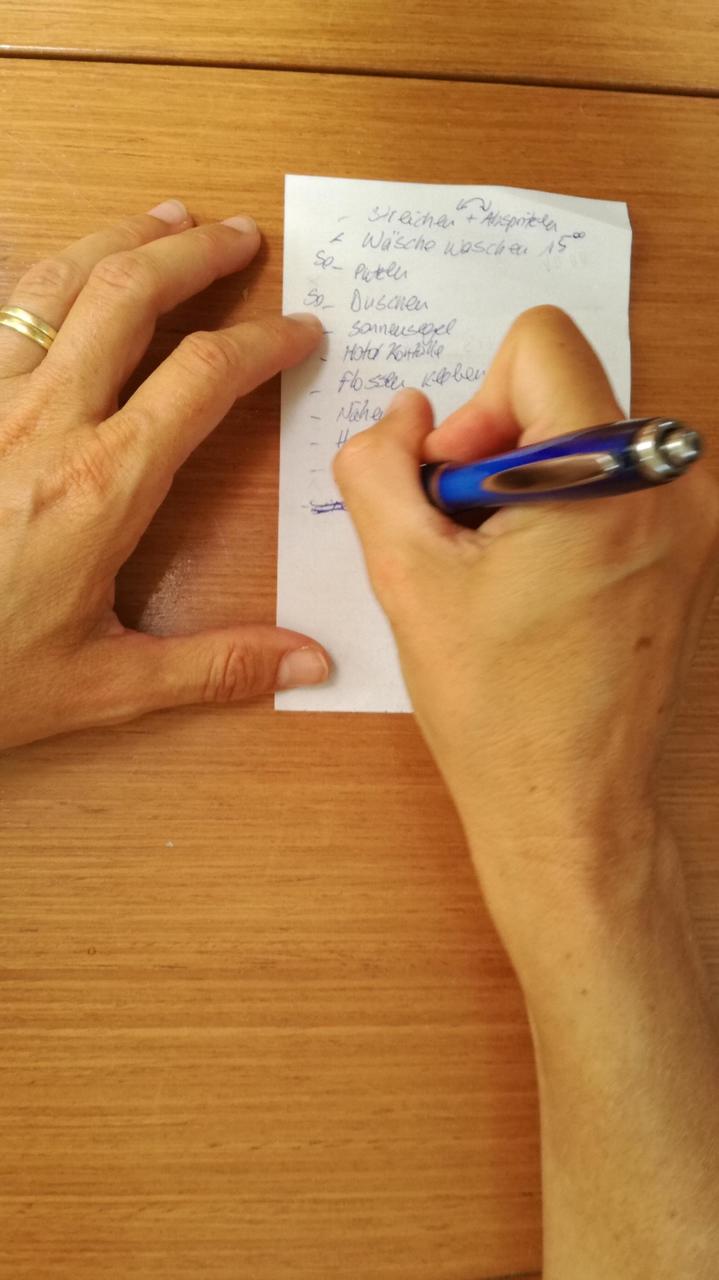 - Streichen + Abspritzen
- Wäsche Waschen 15⁰⁰
So-
So- Duschen
- Sonnensegel
- Motor Kontrolle
- Flossen Kleben
- Nähen
- H